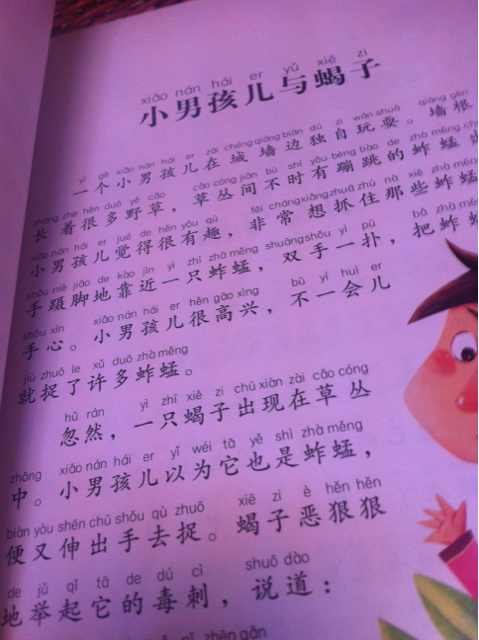 xiǎo nán hái er yǔ xiē zi
小男孩儿与蝎子
yí gè xiǎo nán hái er zài chéng qiáng biān dú zì wán shuǎ qiáng gēn
一个小男孩儿在城墙边独自玩耍。墙根
zhǎng zhe hěn duō yě cǎo cǎo cóng jiān bù shí yǒu bèng bèng tiào de zhà měng
长着很多野草，草丛间不时有蹦跳的蚱蜢
xiǎo nán hái er jué de hěn yǒu qù fēi cháng xiǎng zhuā zhù nà xiē zhà měng
小男孩儿觉得很有趣，非常想抓住那些蚱蜢
shǒu niè jiǎo de kào jìn yì zhī zhà měng shuāng shǒu yì pū bǎ zhà měng
手蹑脚地靠近一只蚱蜢，双手一扑，把蚱蜢
shǒu xīn xiǎo nán hái er hěn gāo xìng bù yí huì er
手心。小男孩儿很高兴，不一会儿
jiù zhuō le xǔ duō zhà měng
就捉了许多蚱蜢。
hū rán yì zhī xiē zi chū xiàn zài cǎo cóng
忽然，一只蝎子出现在草丛
zhōng xiǎo nán hái er yǐ wéi tā yě shì zhà měng
中。小男孩儿以为它也是蚱蜢，
biàn yòu shēn chū shǒu qù zhuō xiē zi è hěn hěn
便又伸出手去捉。蝎子恶狠狠
de jǔ qǐ tā de dú cì shuō dào
地举起它的毒刺，说道：